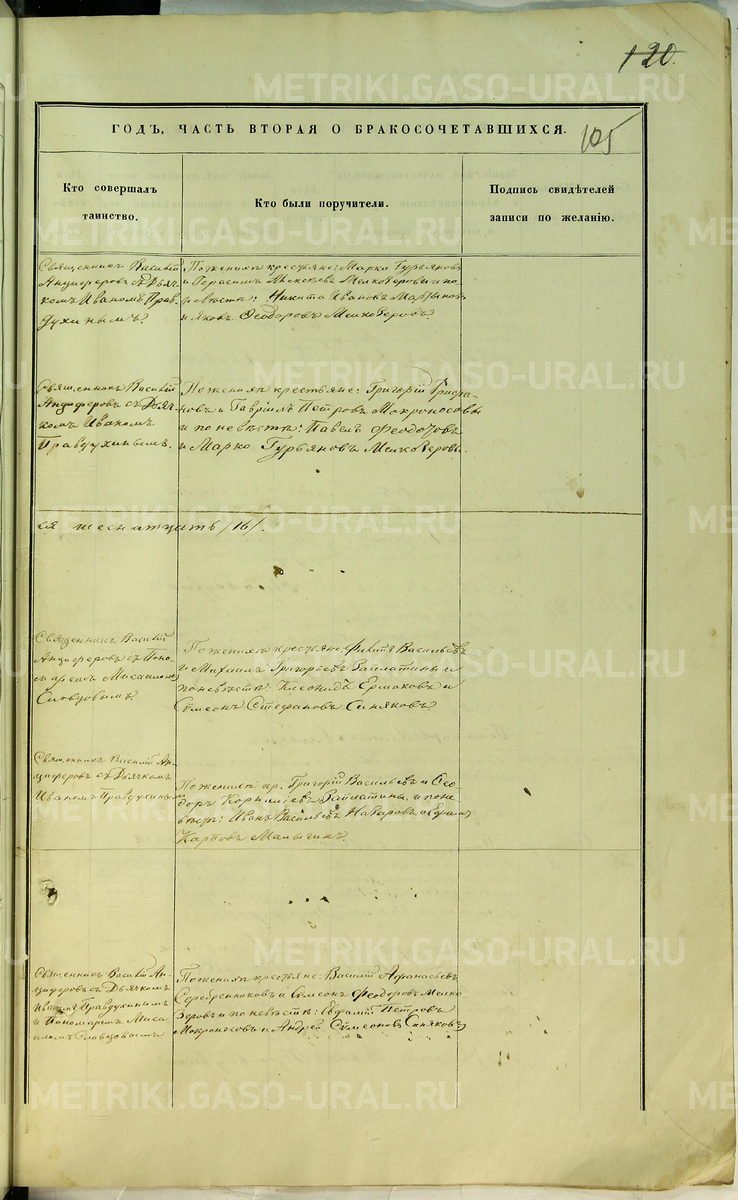 120.
ГОДЪ, ЧАСТЬ ВТОРАЯ О БРАКОСОЧЕТАВШИХСЯ.
105
Кто совершалъ
таинство.
Кто были поручители.
Подпись свидѣтелей
записи по желанію.
Священникъ Василій
Анциферовъ съ Дьяч-
комъ Иваномъ Прав-
духинымъ.
По женихѣ крестьяне: Марко Гурьяновъ
и Герасимъ Алексѣевъ Мелкозеровы и по
невѣстѣ: Никита Ивановъ Мартыновъ
и Яковъ Ѳеодоровъ Мелкозеровъ.
Священникъ Василій
Анциферовъ съ Дьяч-
комъ Иваномъ
Правдухинымъ.
По женихѣ крестьяне: Григорій
новъ и Гавріилъ Петровъ Мокроносовы
и по невѣстѣ: Павелъ Ѳеодотовъ
и Марко Гурьяновъ Мелкозеровы.
ся шеснатцать /16/.
Священникъ Василій
Анциферовъ съ Поно-
маремъ Мисаиломъ
Словцовымъ.
По женихѣ крестьяне: Васильевъ
и Михаилъ Григорьевъ Гайлатины и
по невѣстѣ: Леонидъ Ермаковъ и
Сѵмеонъ Стефановъ Синяковъ.
Священникъ Василій Ан-
циферовъ съ Дьячкомъ
Иваномъ Правдухинымъ
По женихѣ кр. Григорій Васильевъ и Ѳео-
доръ Корниліевъ Гайлатины, и по не-
вѣстѣ: Иванъ Васильевъ Назаровъ и Ефимъ
Карповъ Малыгинъ.
Священникъ Василій Ан-
циферовъ съ Дьячкомъ
Иваномъ Правдухинымъ
и Пономаремъ Миса-
иломъ Словцовымъ
По женихѣ крестьяне: Василій Аѳанасьевъ
Серебренниковъ и Сѵмеонъ Ѳеодоровъ Мелко-
зеровъ и по невѣстѣ: Петровъ
Мокроносовъ и Андрей Сѵмеоновъ Синяковъ
METRIKI.GASO-URAL.RU